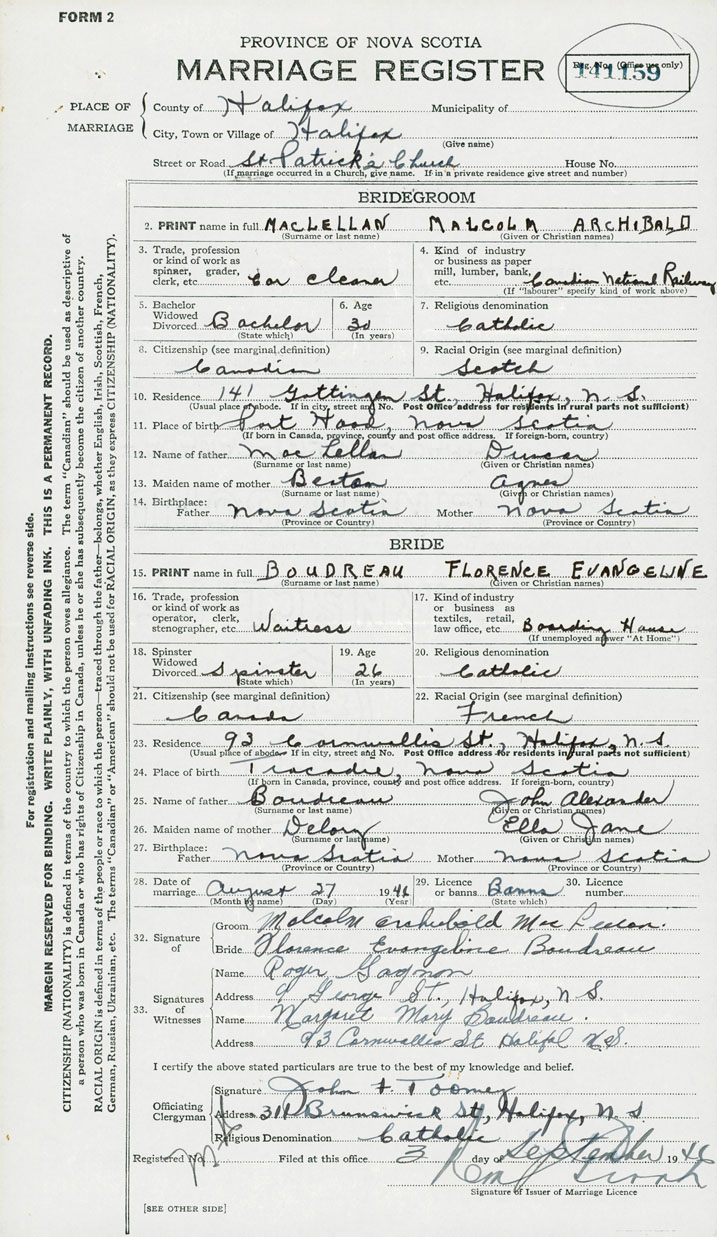 FORM 2
PROVINCE OF NOVA SCOTIA
MARRIAGE REGISTER
Reg. No. (Office use only)
141159
PLACE OF MARRIAGE
County of Halifax Municipality of
City, Town or Village of Halifax
(Give name)
Street or Road St Patrick's Church House No.
(If marriage occurred in a Church, give name. If in a private residence give street and number)
BRIDEGROOM
2. PRINT name in full MACLELLAN MALCOLM ARCHIBALD
(Surname or last name) (Given or Christian names)
3. Trade, profession or kind of work as spinner, grader, clerk, etc. Car cleaner
4. Kind of industry or business as paper mill, lumber, bank, etc. Canadian National Railway
(If "labourer" specify kind of work above)
5. Bachelor Widowed Divorced Bachelor
(State which)
6. Age 30
(In years)
7. Religious denomination
Catholic
8. Citizenship (see marginal definition)
Canadian
9. Racial Origin (see marginal definition)
Scotch
10. Residence 141 Gottingen St., Halifax, N. S.
(Usual place of abode. If in city, street and No. Post Office address for residents in rural parts not sufficient)
11. Place of birth Port Hood, Nova Scotia
(If born in Canada, province, county and post office address. If foreign-born, country)
12. Name of father MacLellan Duncan
(Surname or last name) (Given or Christian names)
13. Maiden name of mother Beaton Agnes
(Surname or last name) (Given or Christian names)
14. Birthplace: Father Nova Scotia Mother Nova Scotia
(Province or Country) (Province or Country)
BRIDE
15. PRINT name in full BOUDREAU FLORENCE EVANGELINE
(Surname or last name) (Given or Christian names)
16. Trade, profession or kind of work as operator, clerk, stenographer, etc. Waitress
17. Kind of industry or business as textiles, retail, law office, etc. Boarding House
(If unemployed answer "At Home")
18. Spinster Widowed Divorced Spinster
(State which)
19. Age 26
(In years)
20. Religious denomination
Catholic
21. Citizenship (see marginal definition)
Canada
22. Racial Origin (see marginal definition)
French
23. Residence 93 Cornwallis St., Halifax, N.S.
(Usual place of abode. If in city, street and No. Post Office address for residents in rural parts not sufficient)
24. Place of birth Tracadie, Nova Scotia
(If born in Canada, province, county and post office address. If foreign-born, country)
25. Name of father Boudreau John Alexander
(Surname or last name) (Given or Christian names)
26. Maiden name of mother Delory Ella Jane
(Surname or last name) (Given or Christian names)
27. Birthplace: Father Nova Scotia Mother Nova Scotia
(Province or Country) (Province or Country)
28. Date of marriage August 27 1946
(Month by name) (Day) (Year)
29. Licence or banns Banns
(State which)
30. Licence number
32. Signature of
Groom Malcolm Archibald Mac
Bride Florence Evangeline Boudreau
33. Signatures of Witnesses
Name Roger Gagnon
Address 9 George St., Halifax, N S.
Name Margaret Mary Boudreau.
Address 93 Cornwallis St Halifax N.S.
I certify the above stated particulars are true to the best of my knowledge and belief.
Officiating Clergyman
Signature John F. Toomey
Address 311 Brunswick St, Halifax, N. S
Religious Denomination Catholic
Registered No. Filed at this office 3 day of September 1946
Signature of Issuer of Marriage Licence
[SEE OTHER SIDE]
For registration and mailing instructions see reverse side.
MARGIN RESERVED FOR BINDING. WRITE PLAINLY, WITH UNFADING INK. THIS IS A PERMANENT RECORD.
CITIZENSHIP (NATIONALITY) is defined in terms of the country to which the person owes allegiance. The term "Canadian" should be used as descriptive of
a person who was born in Canada or who has rights of Citizenship in Canada, unless he or she has subsequently become the citizen of another country.
RACIAL ORIGIN is defined in terms of the people or race to which the person—traced through the father—belongs, whether English, Irish, Scottish, French,
German, Russian, Ukrainian, etc. The terms "Canadian" or "American" should not be used for RACIAL ORIGIN, as they express CITIZENSHIP (NATIONALITY).